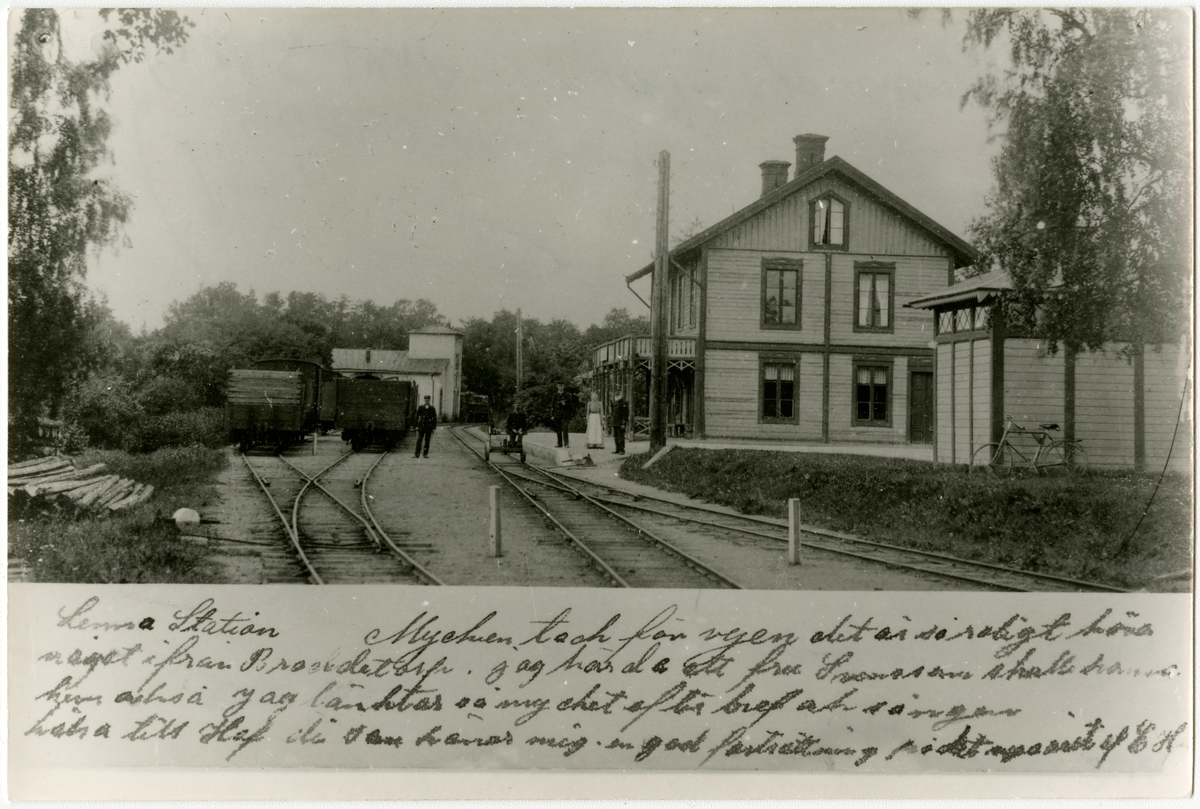 Lenna Station Mycken tack för vyen det är så roligt höra
något ifrån Broddetorp. jag hörda att fru Svensson skulle komma
hem också jag länktar så mycket efter bref ak sången
hälsa till Haf du som känar mig. en god fortsättning på det nya året af E H